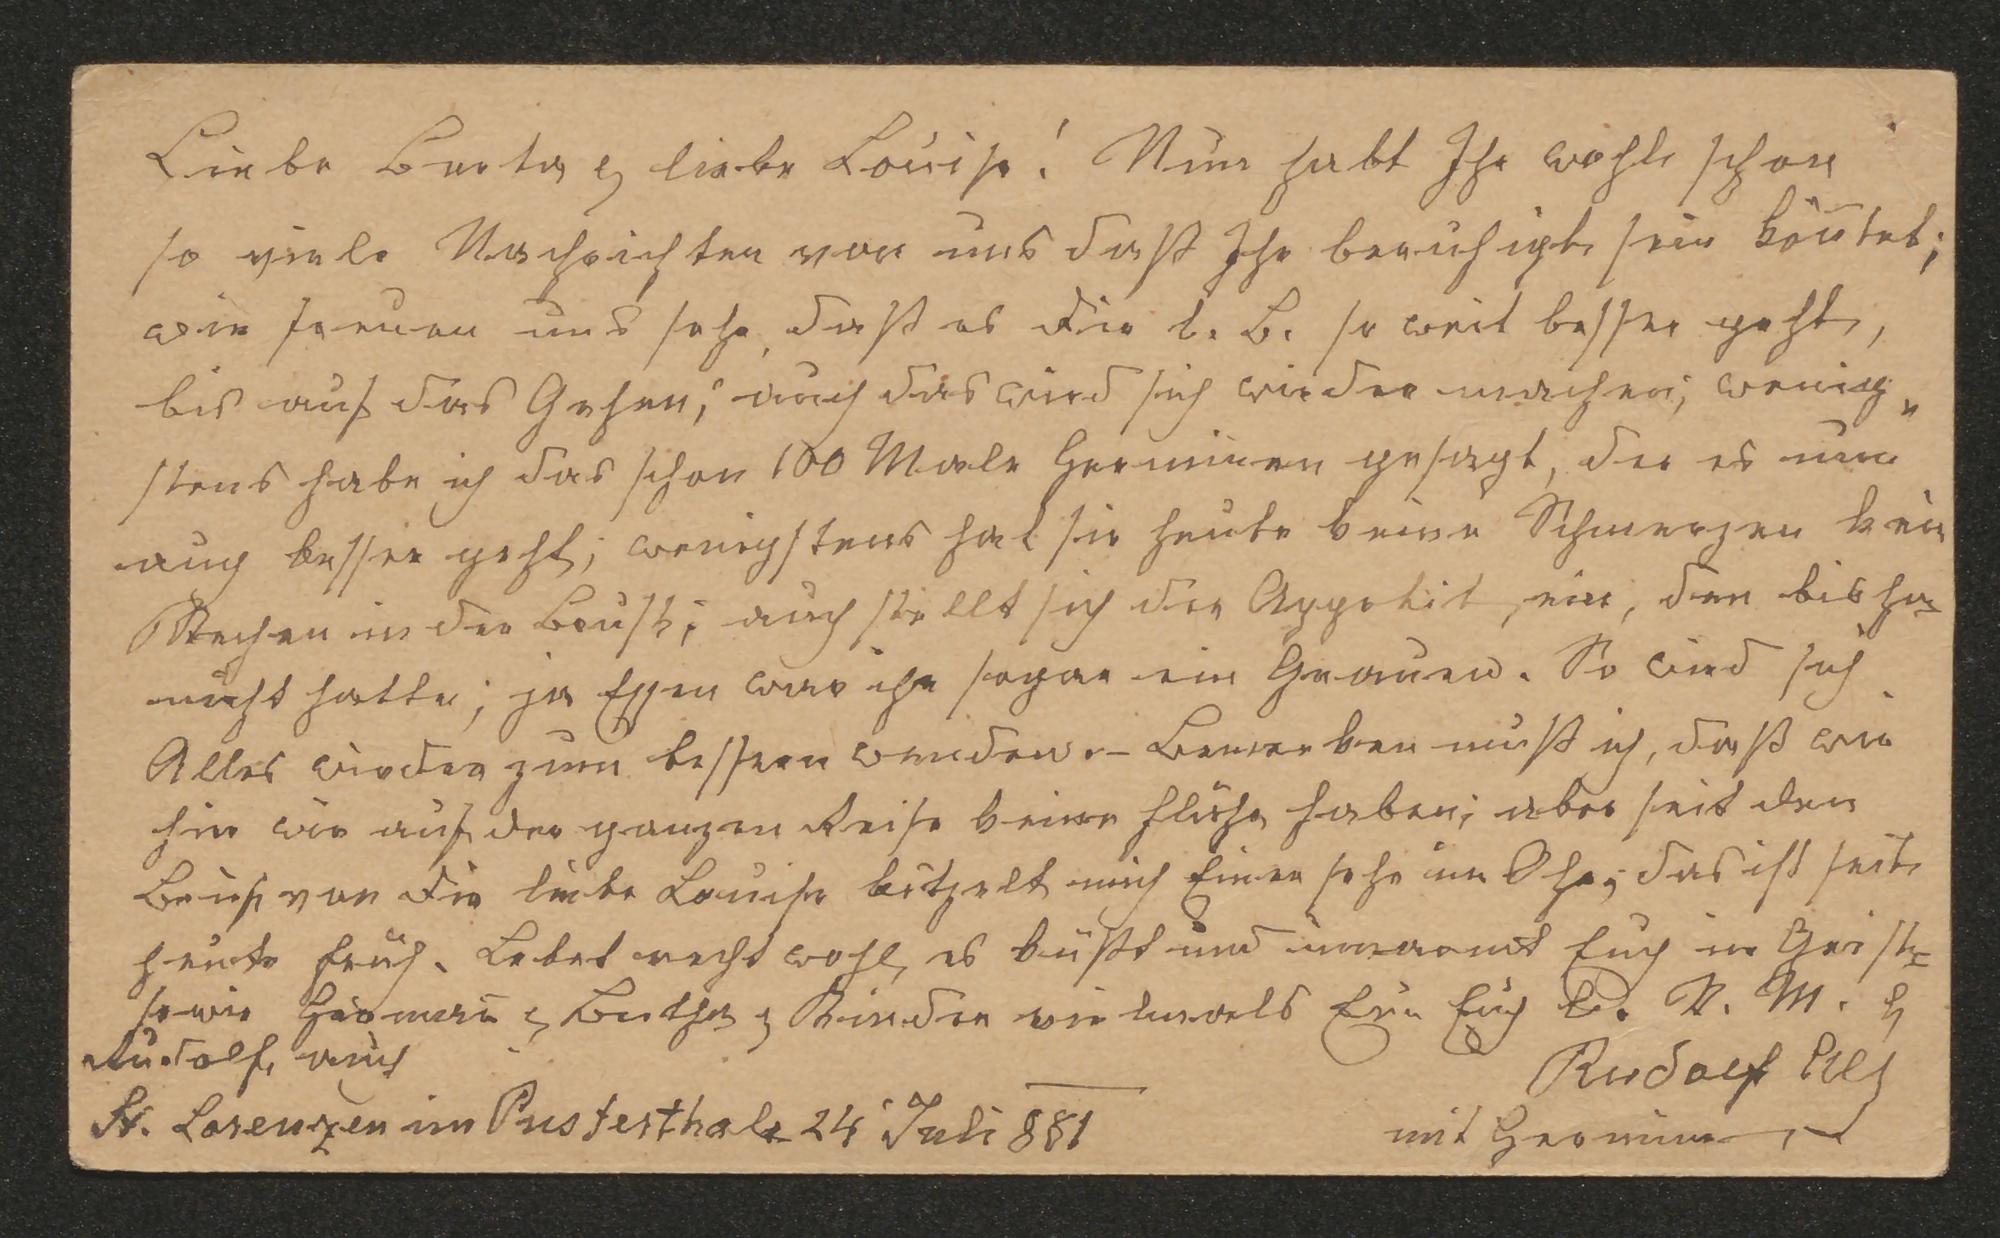 Liebe Berta & liebe Louise! Nun habt Ihr wohl schon
so viele Nachrichten von uns daß Ihr beruhigt sein kön̅tet;
wir freuen uns sehr, daß es Dir l. B. so weit besser geht,
bis auf das Gehen; auch das wird sich wieder machen; wenig-
stens habe ich das schon 100 Male Herminen gesagt, der es nun
auch besser geht; wenigstens hat sie heute keine Schmerzen kein
Stechen in der Brust; auch stellt sich der Appetit ein, den bisher
nicht hatte; ja Essen war ihr sogar ein Grauen. So wird sich
Alles wieder zum bessern wenden. – Bemerken muß ich, daß wir
hier wie auf der ganzen Reise keine Flöhe haben; aber seit dem
Brief von Dir liebe Louise kitzelt mich Einer sehr im Ohr; das ist seit
heute früh. Lebet recht wohl, es küßt und umarmt Euch im Geiste
sowie Herman & Bertha & Kinder vielmals Euer Euch l. V. M. &
Rudolf auch
Rudolf Alt
St. Lorenzen im Pusterthale 24 Juli 881
mit Hermine